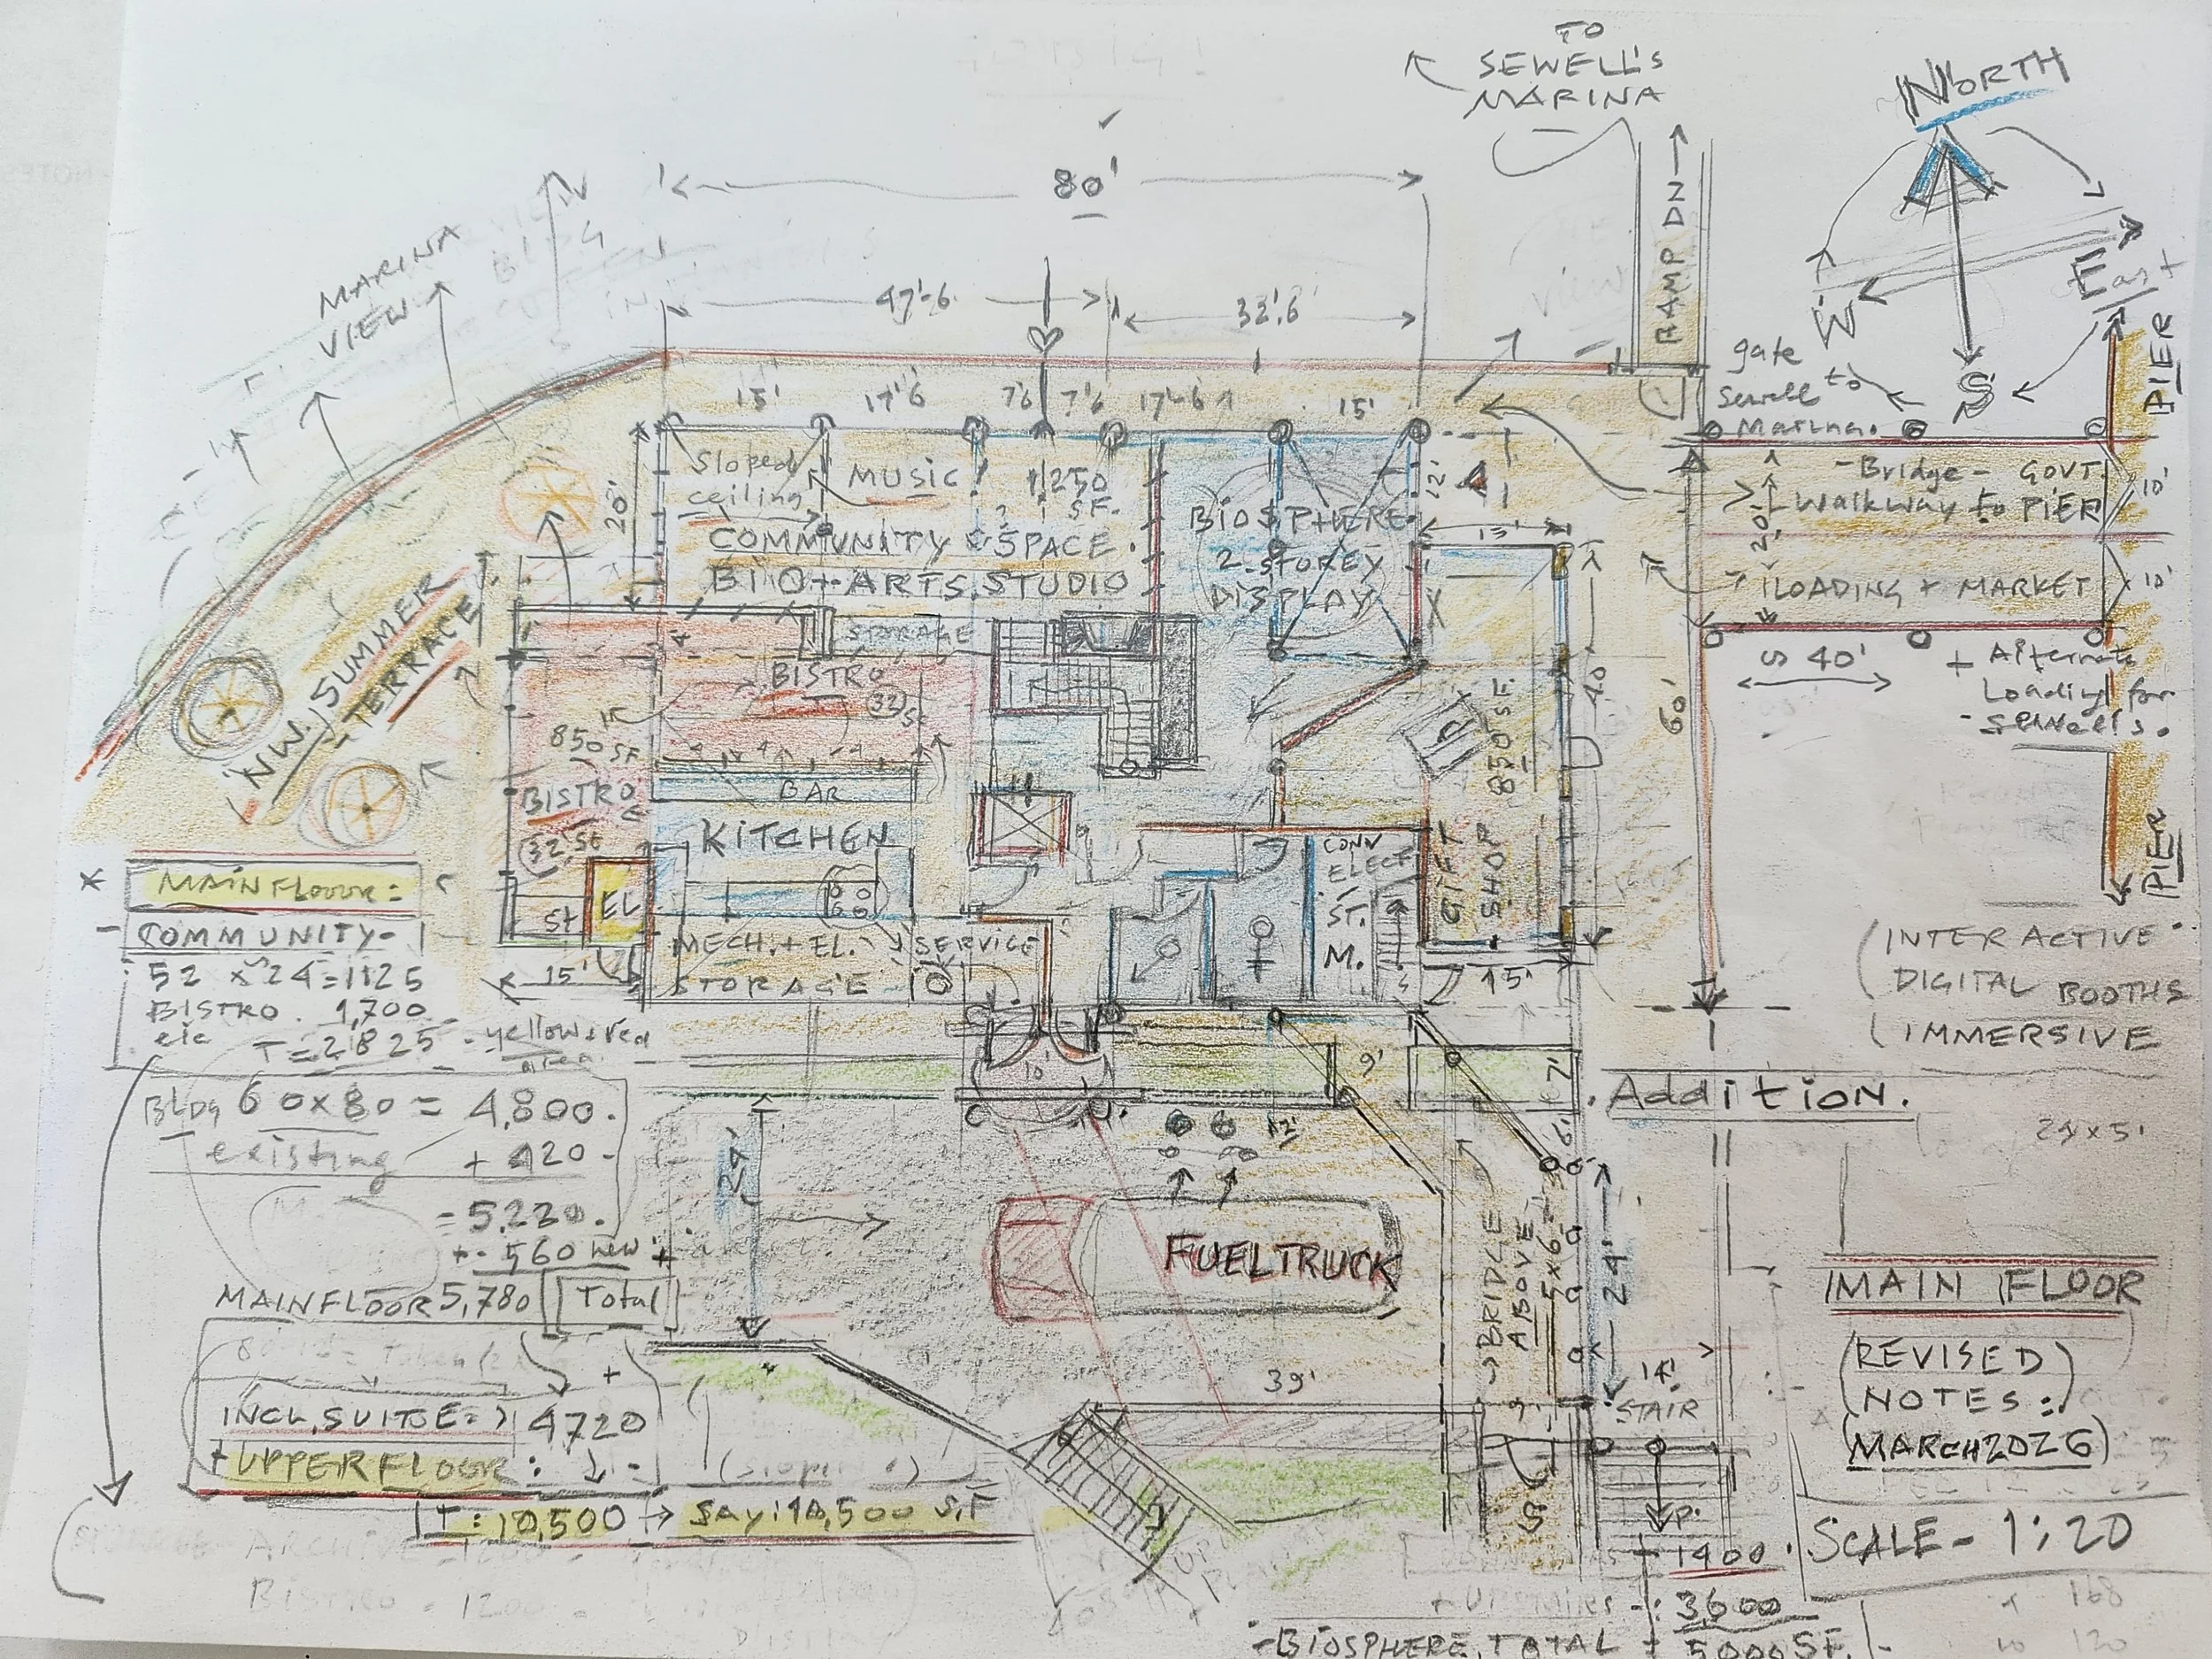 TO
SEWELL'S
MARINA
NORTH
RAMP DN
W
East
S
PIER
MARINA
VIEW
N
80'
47'-6
32'.6'
15'
17'6
7'6
7'6
17'-6
15'
gate
to
Sewell
Marina.
- Bridge - GOVT.
Walkway to PIER
10'
20'
LOADING + MARKET
10'
40'
+ Alternate
Loading for
- SEWELL'S.
PIER
20'
Sloped
ceiling
MUSIC
1250
SF.
COMMUNITY SPACE
BIO + ARTS STUDIO
STORAGE
BIOSPHERE
2 STOREY
DISPLAY
12'
15'
40'
60'
NW. SUMMER
TERRACE
BISTRO
32 St
850 SF
BISTRO
32 St
BAR
KITCHEN
St
EL
15'
MECH. + EL.
STORAGE
SERVICE
CONV
ELECT
ST.
M.
GIFT
SHOP 850 SF.
15'
MAIN FLOOR:
COMMUNITY-
52 x 24 = 1125
BISTRO. 1,700
etc
T = 2825 - yellow + red
area.
BLDG 60x80 = 4,800.
existing + 420 -
= 5,220.
+ 560 new +
MAIN FLOOR 5,780 Total
INCL, SUITE = 4720
+ UPPER FLOOR:
T: 10,500 → say: 10,500 S.F
24'
10'
12'
9'
7'
6'
FUEL TRUCK
BRIDGE
ABOVE
5x6
24'
39'
14'
STAIR
(INTERACTIVE
DIGITAL BOOTHS
(IMMERSIVE
. Addition.
24x5'
MAIN FLOOR
(REVISED)
(NOTES:
(MARCH 2026)
SCALE - 1:20
1400
3,600
- BIOSPHERE, TOTAL = 5000 SF.
168
120